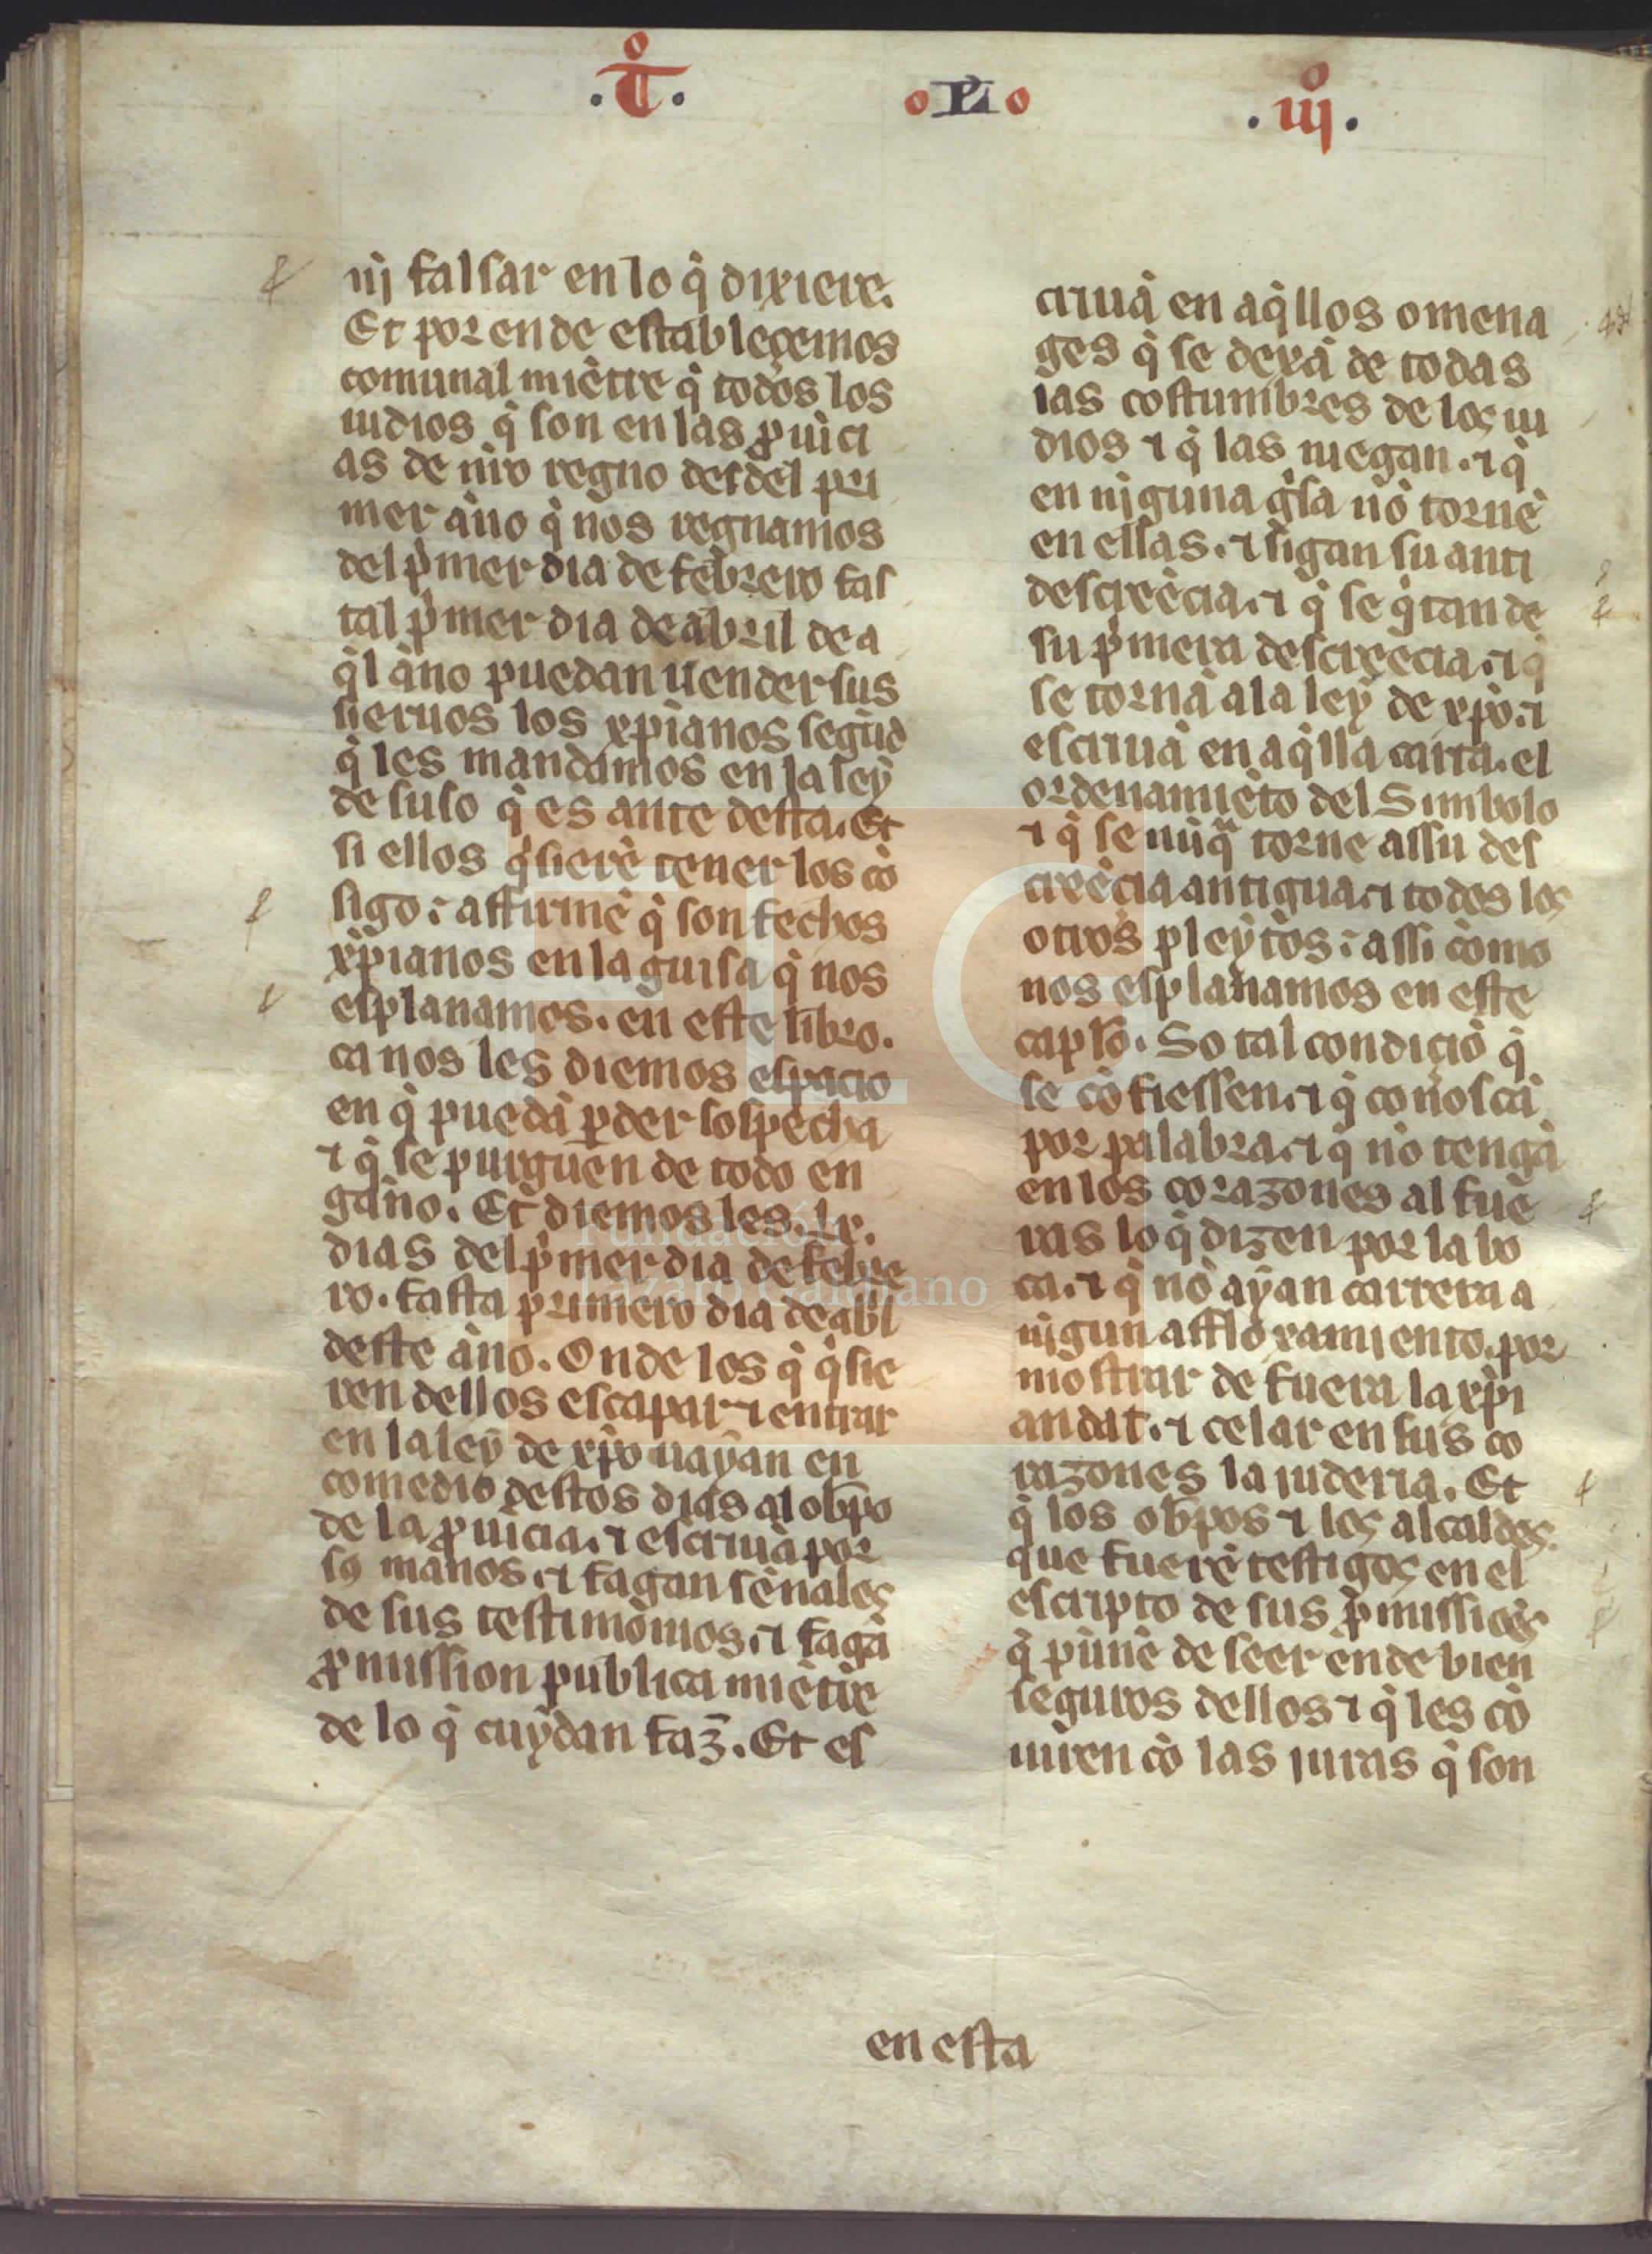 .t̊. o PLI o .iij̊.
nj falsar en lo q̇ dixiere.
Et por ende estableçemos
comunal miẽtre q̇ todos los
iudios q̇ son en las ꝓuĩci
as de nr̃o regno desdel pri
mer ãno q̇ nos regnamos
del pͥmer dia de febrero fas
tal pͥmer dia de abril de a
q̇l ãno puedan uender sus
sieruos los xp̃ianos segũd
q̇ les mandamos en la ley
de suso q̇ es ante desta. Et
si ellos qͥsierẽ tener los cõ
sigo: affirmẽ q̇ son fechos
xp̃ianos en la guisa q̇ nos
esplanamos. en este libro.
ca nos les diemos espacio
en q̇ puedã ꝑder sospecha
⁊ q̇ se purguen de todo en
gãno. Et diemos les. lx.
dias del pͥmer dia de febre
ro. fasta primero dia de abl̃
deste ãno. Onde los q̇ qͥsie
ren dellos escapar ⁊ entrar
en la ley de xp̃o uayan en
comedio destos dias al ob̃po
de la ꝓuĩcia. ⁊ escriuã por
sꝰ manos. ⁊ fagan sẽnales
de sus testimonios. ⁊ fagã
ꝓmission publica miẽtre
de lo q̇ cuydan faz̃. Et es
criuã en aq̇llos omena
ges q̇ se dexã de todas
las costumbres de los iu
dios ⁊ q̇ las niegan. ⁊ q̇
en njguna gͥsa nõ tornẽ
en ellas. ⁊ sigan su anti
descreẽcia. ⁊ q̇ se qͥtan de
su pͥmera descreẽcia. ⁊ q̇
se tornã a la ley de xp̃o. ⁊
escriuã en aq̇lla carta. el
ordenamiẽto del Simbolo
⁊ q̇ se nũqᷓ torne assu des
creẽcia antigua. ⁊ todos los
otros pleytos: assi como
nos esplanamos en este
capl̃o. So tal condiçiõ q̇
se cõfiessen. ⁊ q̇ conoscã
por palabra. ⁊ q̇ nõ tengã
en los corazones al fue
ras lo q̇ dizen por la bo
ca. ⁊ q̇ nõ ayan carrera a
njgun affloxamiento. por
mostrar de fuera la xp̃i
andat. ⁊ celar en sus co
razones la juderia. Et
q̇ los ob̃pos ⁊ los alcaldes.
que fuerẽ testigos en el
escripto de sus ꝓmissiões
q̇ punẽ de seer ende bien
seguros dellos ⁊ q̇ les cõ
iuren cõ las juras q̇ son
en esta
FLG
Fundación
Lázaro Galdiano